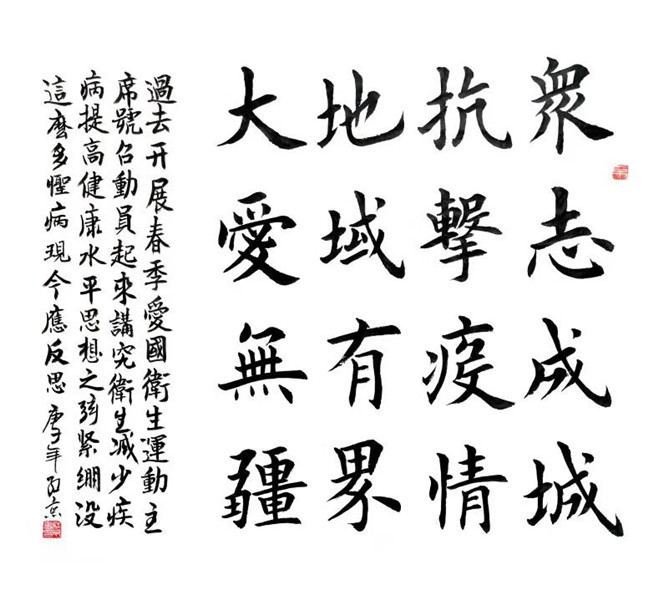 衆志成城
抗擊疫情
地域有界
大愛無疆
過去开展春季愛國衛生運動主
席號召動員起來講究衛生减少疾
病提高健康水平思想之弦緊綳没
這麼多病現今應反思庚子年